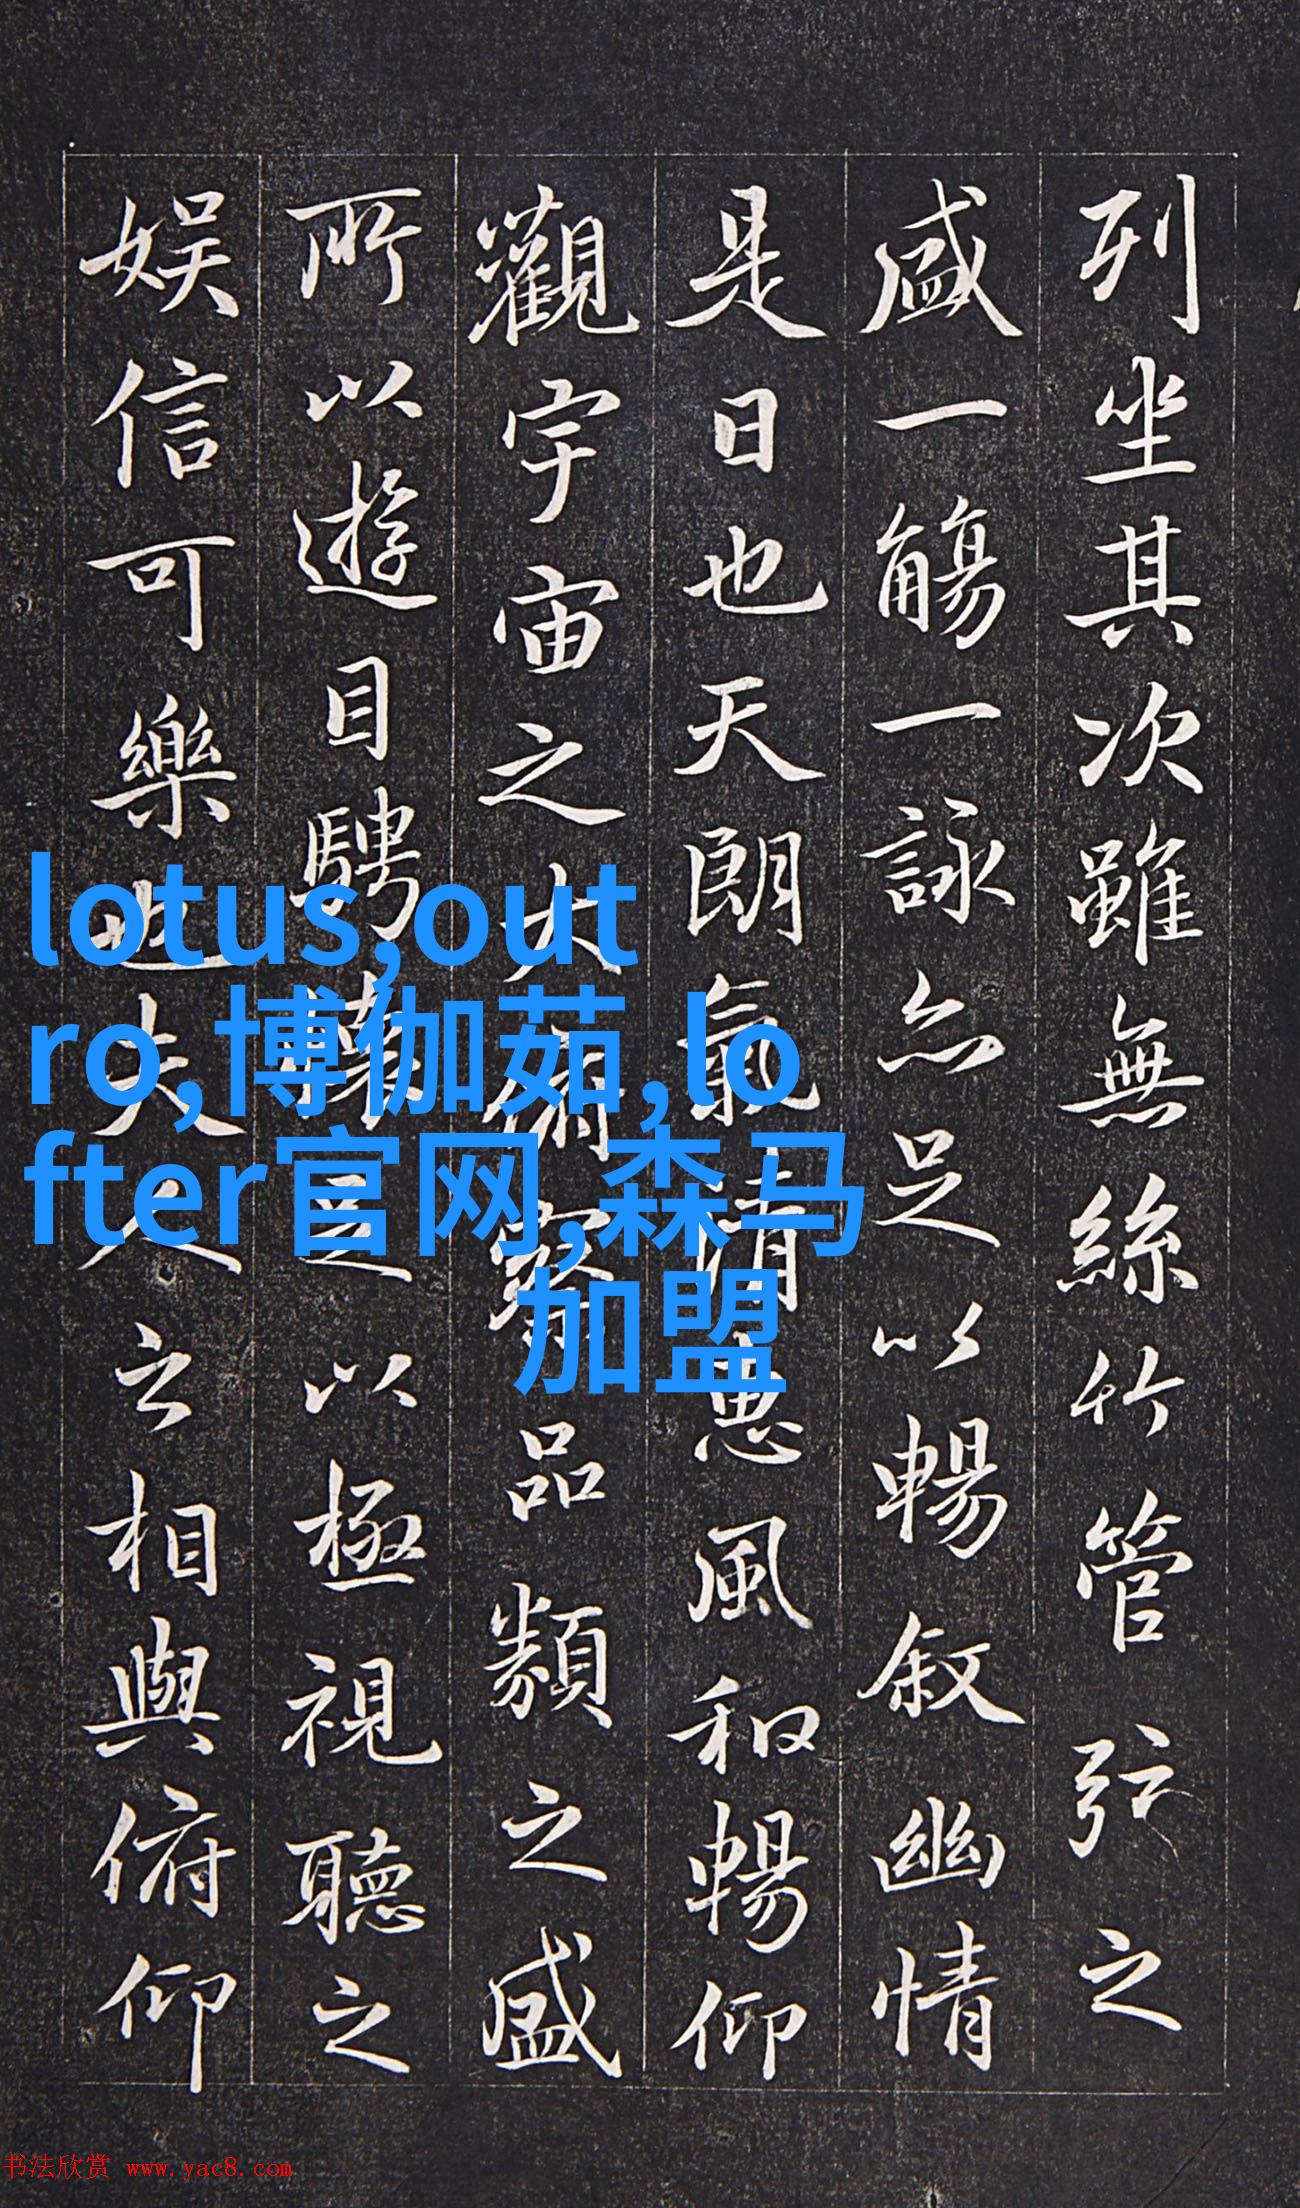 列坐其次雖無絲竹管弦之
盛一觴一詠亦足以暢敘幽情
是日也天朗氣清惠風和暢仰
觀宇宙之大俯察品類之盛
所以遊目騁懷足以極視聽之
娛信可樂也夫人之相與俯仰
lotus,out
ro,博伽茹,lo
fter官网,森马
加盟
书法欣赏 www.yac8.com